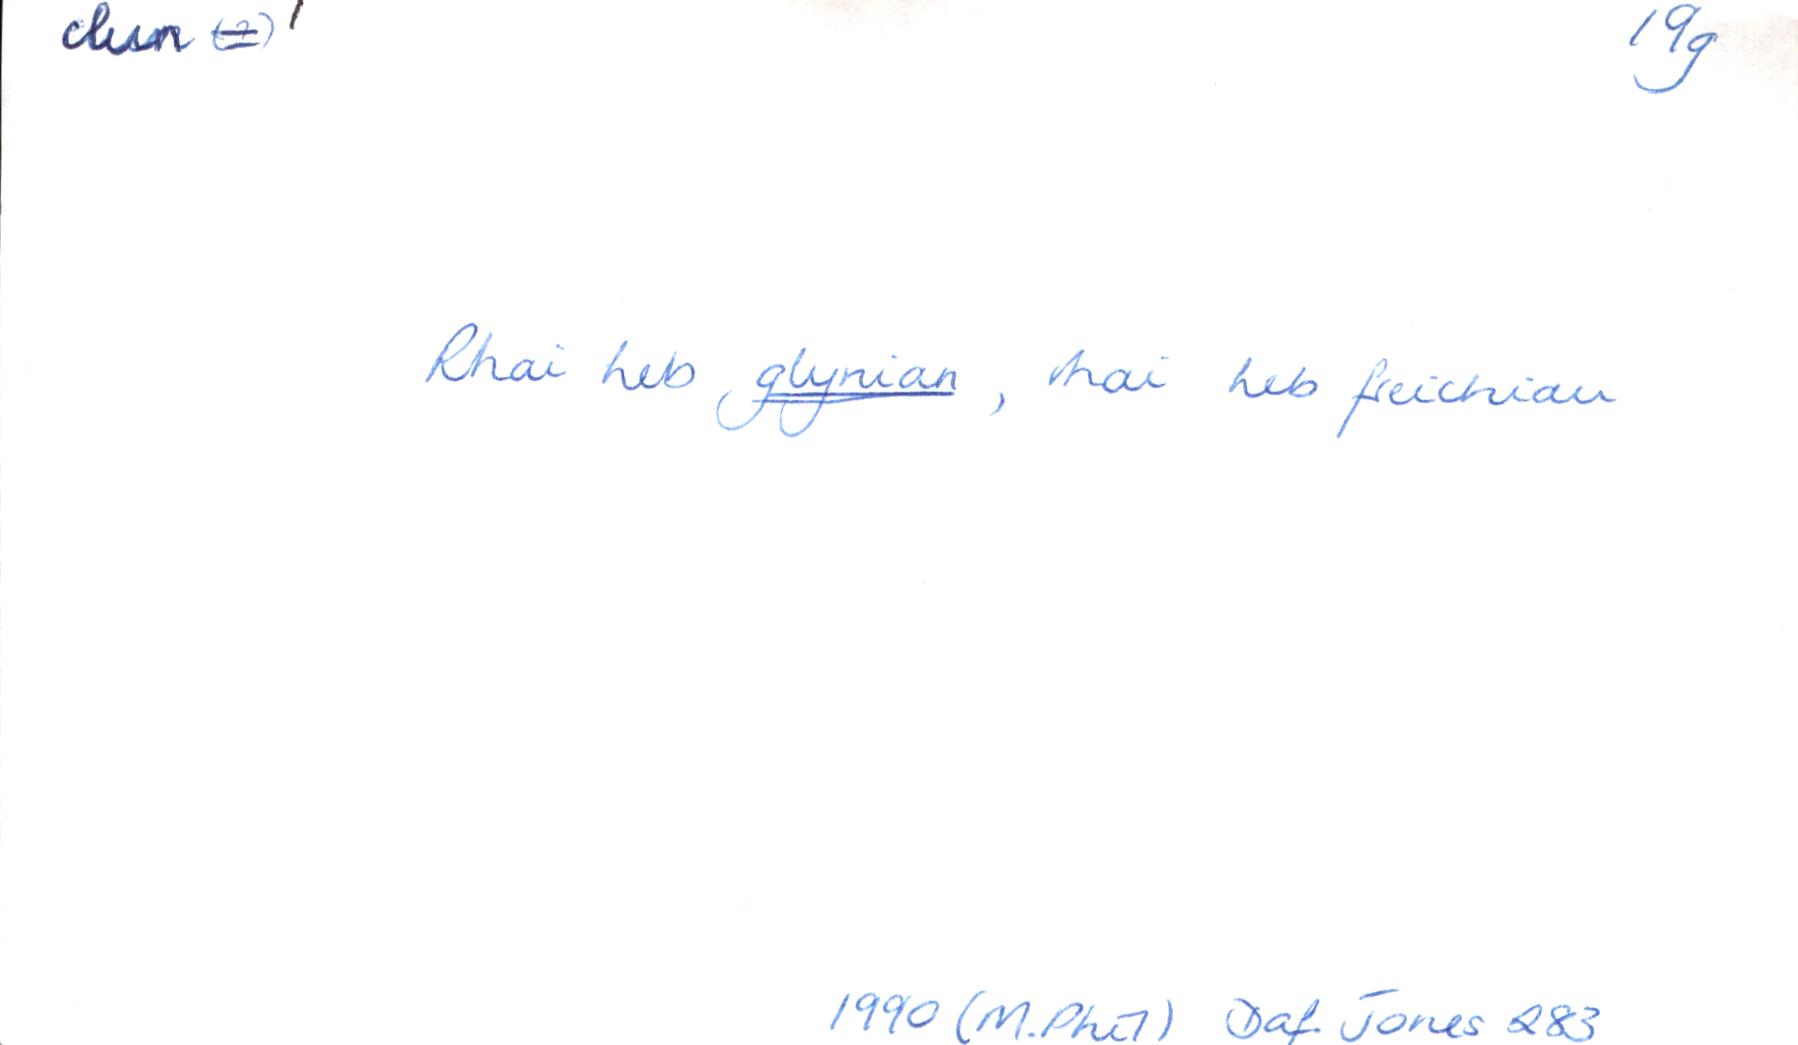 clun (2) 1
19g
Rhai heb glynian, rhai heb freichiau
1990 (M.Phil) Daf. Jones 283